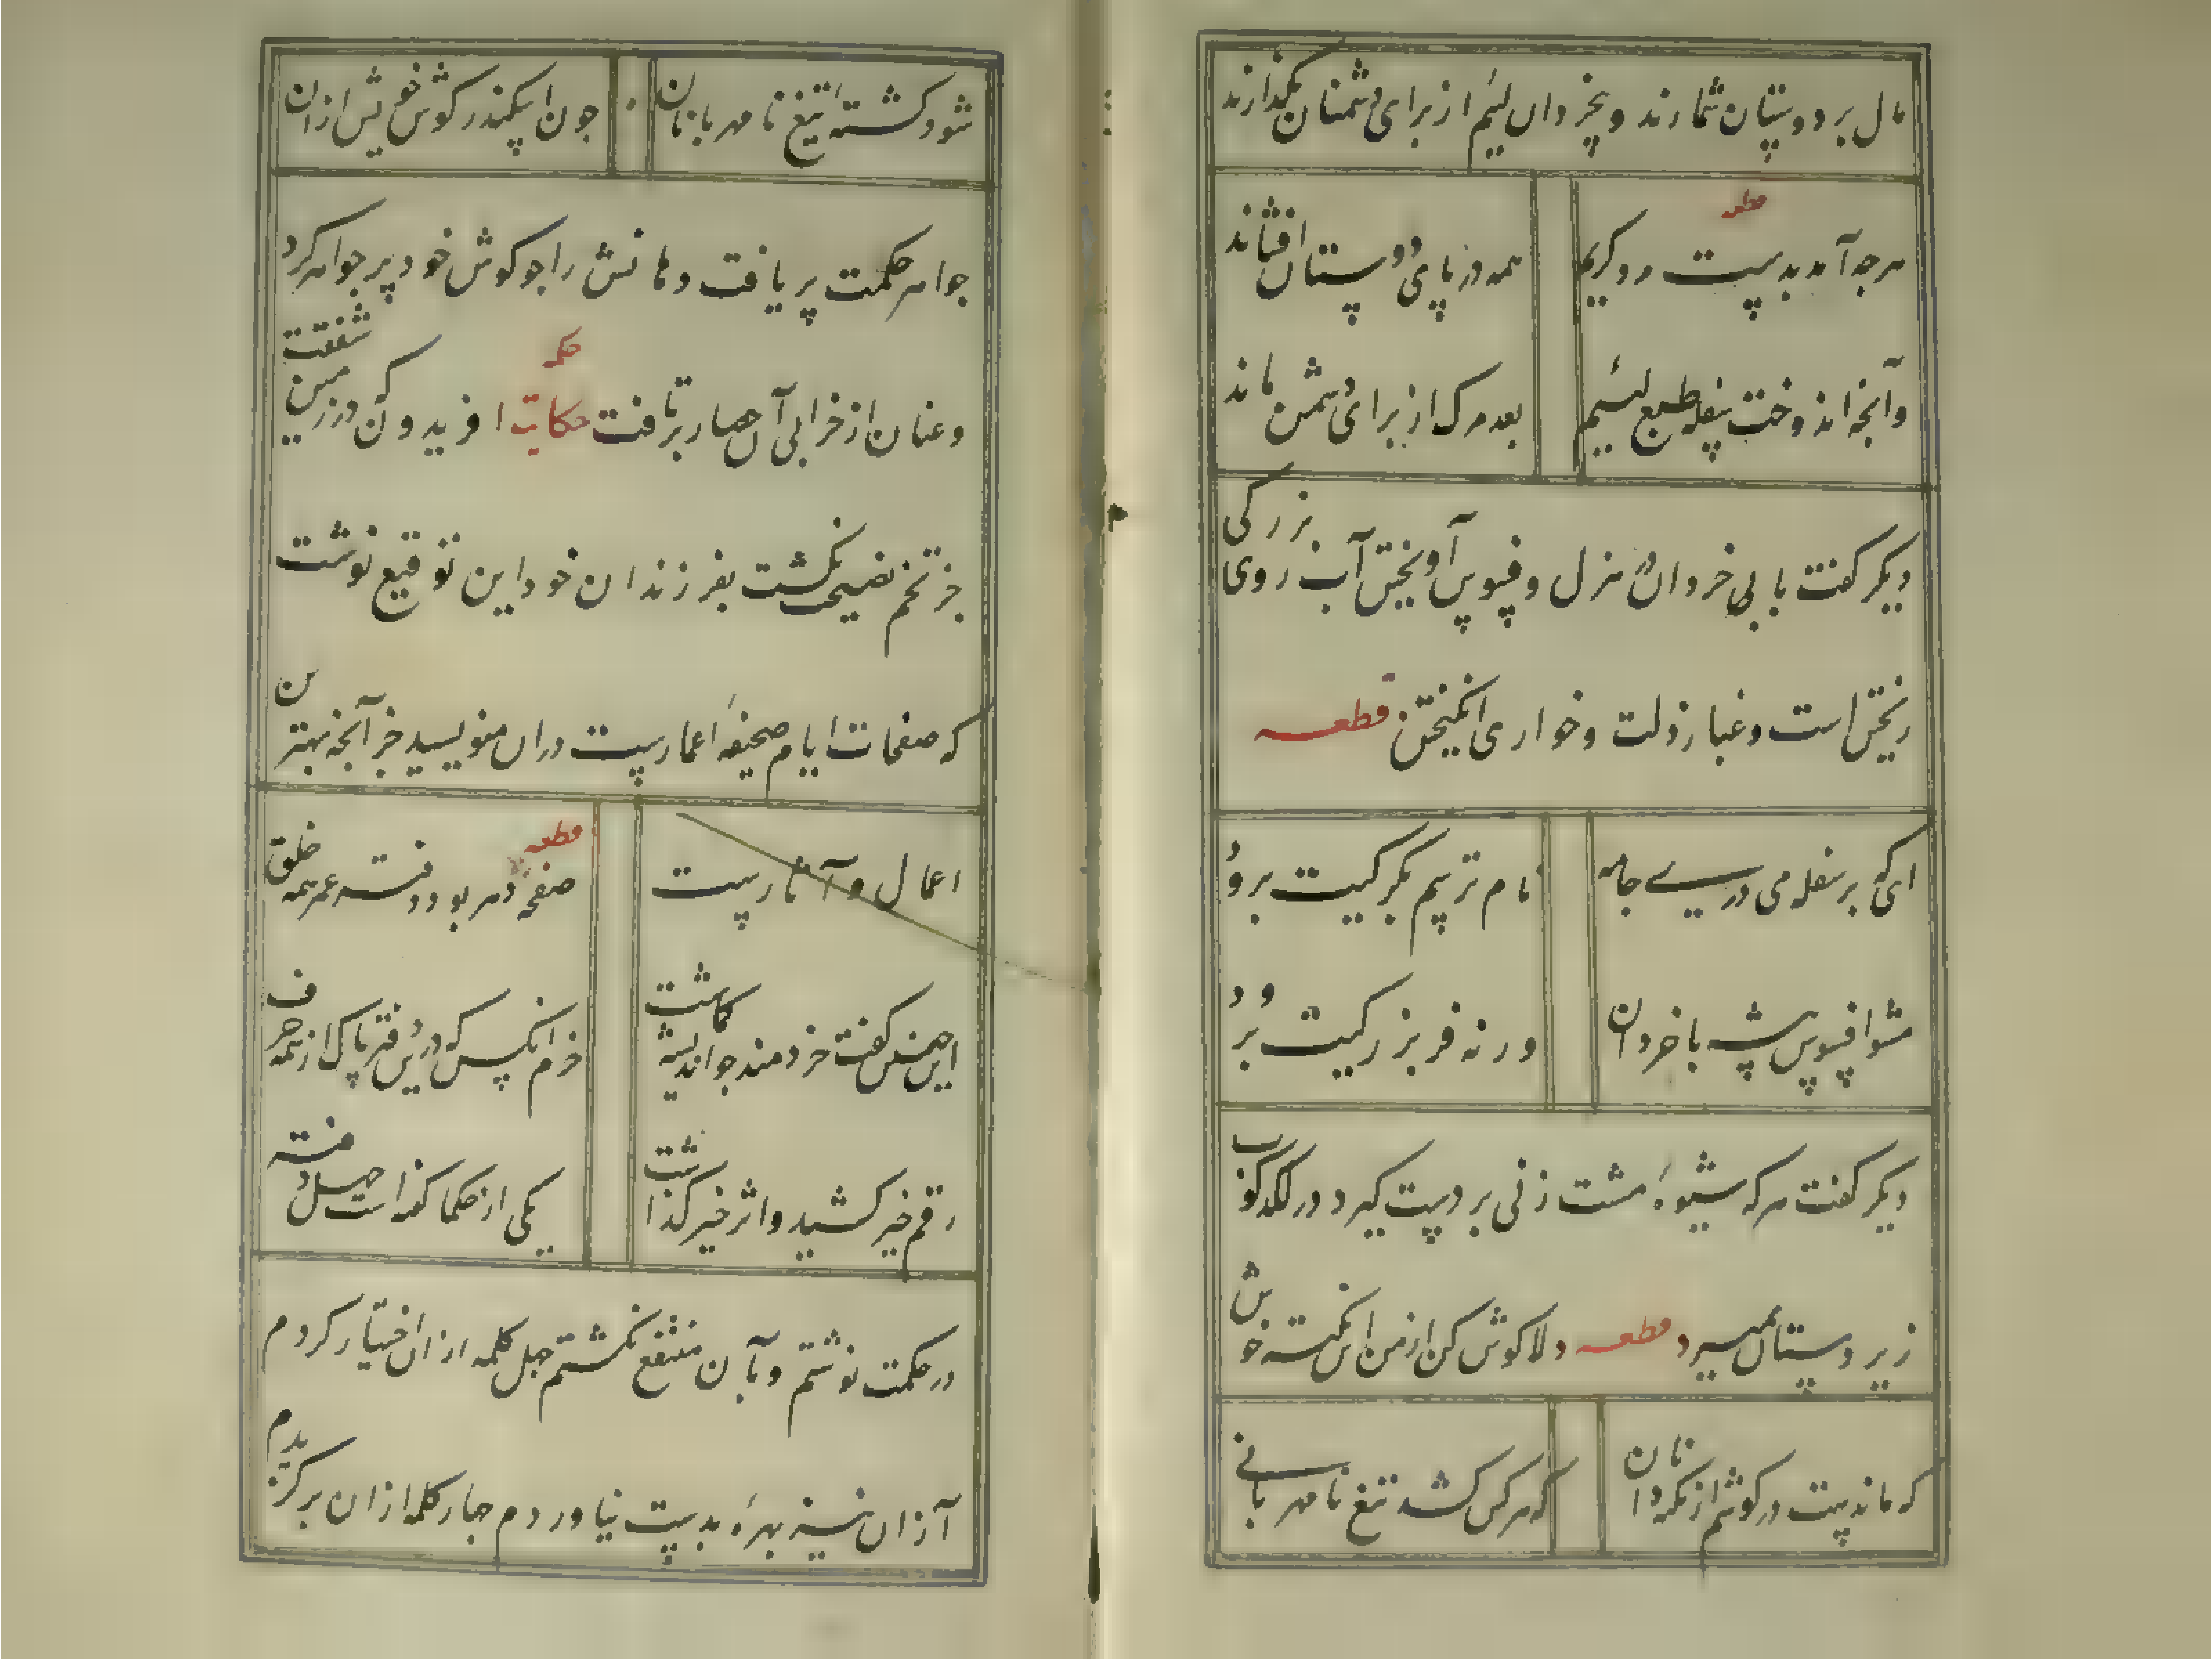 مال بر دوستان شمارند و بخردان لئیم از برای دشمنان بگذارند
قطعه
هرجه آمد بدست مرد کریم همه در پای دوستان افشاند
وآنجه اندوخت سفله طبع لئیم بعد مرک از برای دشمن ماند
دیکر کفت با بی خردان هزل و فسوس آویختن آب روی بزرکی
ریختن است و غبار ذلت و خواری انکیختن قطعه
ای که بر سفله می دری جامه نام ترسم بکرکیت برود
مشو افسوس پیشه با خردان ورنه فر بزرکیت برود
دیکر کفت هرکه شیوهٔ مشت زنی بر دست کیرد در لکدکوب
زیردستان بمیرد قطعه دلا کوش کن از من این نکته خوش
که ماندست در کوشم از نکته دانان که هر کس کشد تیغ نامهربانی
شود کشتهٔ تیغ نامهربانان جون اسکندر کوش خویش از ان
جواهر حکمت پر یافت دهانش را جو کوش خود پر جواهر کرد
و عنان از خرابی آن حصار برتافت حکایت حکمه افریدون که در زمین شفقت
جز تخم نصیحت نکشت بفرزندان خود این توقیع نوشت
که صفحات ایام صحیفهٔ اعمارست دران منویسید جز آنجه بهترین
اعمال و آثارست قطعه صفحه دهر بود دفتر عمر همه خلق
اینجنین کفت خردمند جو اندیشه کماشت خرم انکس که درین دفتر پاک از همه حرف
رقم خیر کشید و اثر خیر کذاشت یکی از حکما کفته است جهل دفتر
در حکمت نوشتم و بآن منتفع نکشتم جهل کلمه از ان اختیار کردم
از آن نیز بهرهٔ بدست نیاوردم جهار کلمه از ان برکزیدم